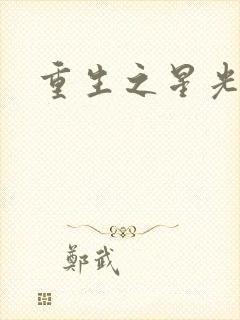 重生之星光
鄭武